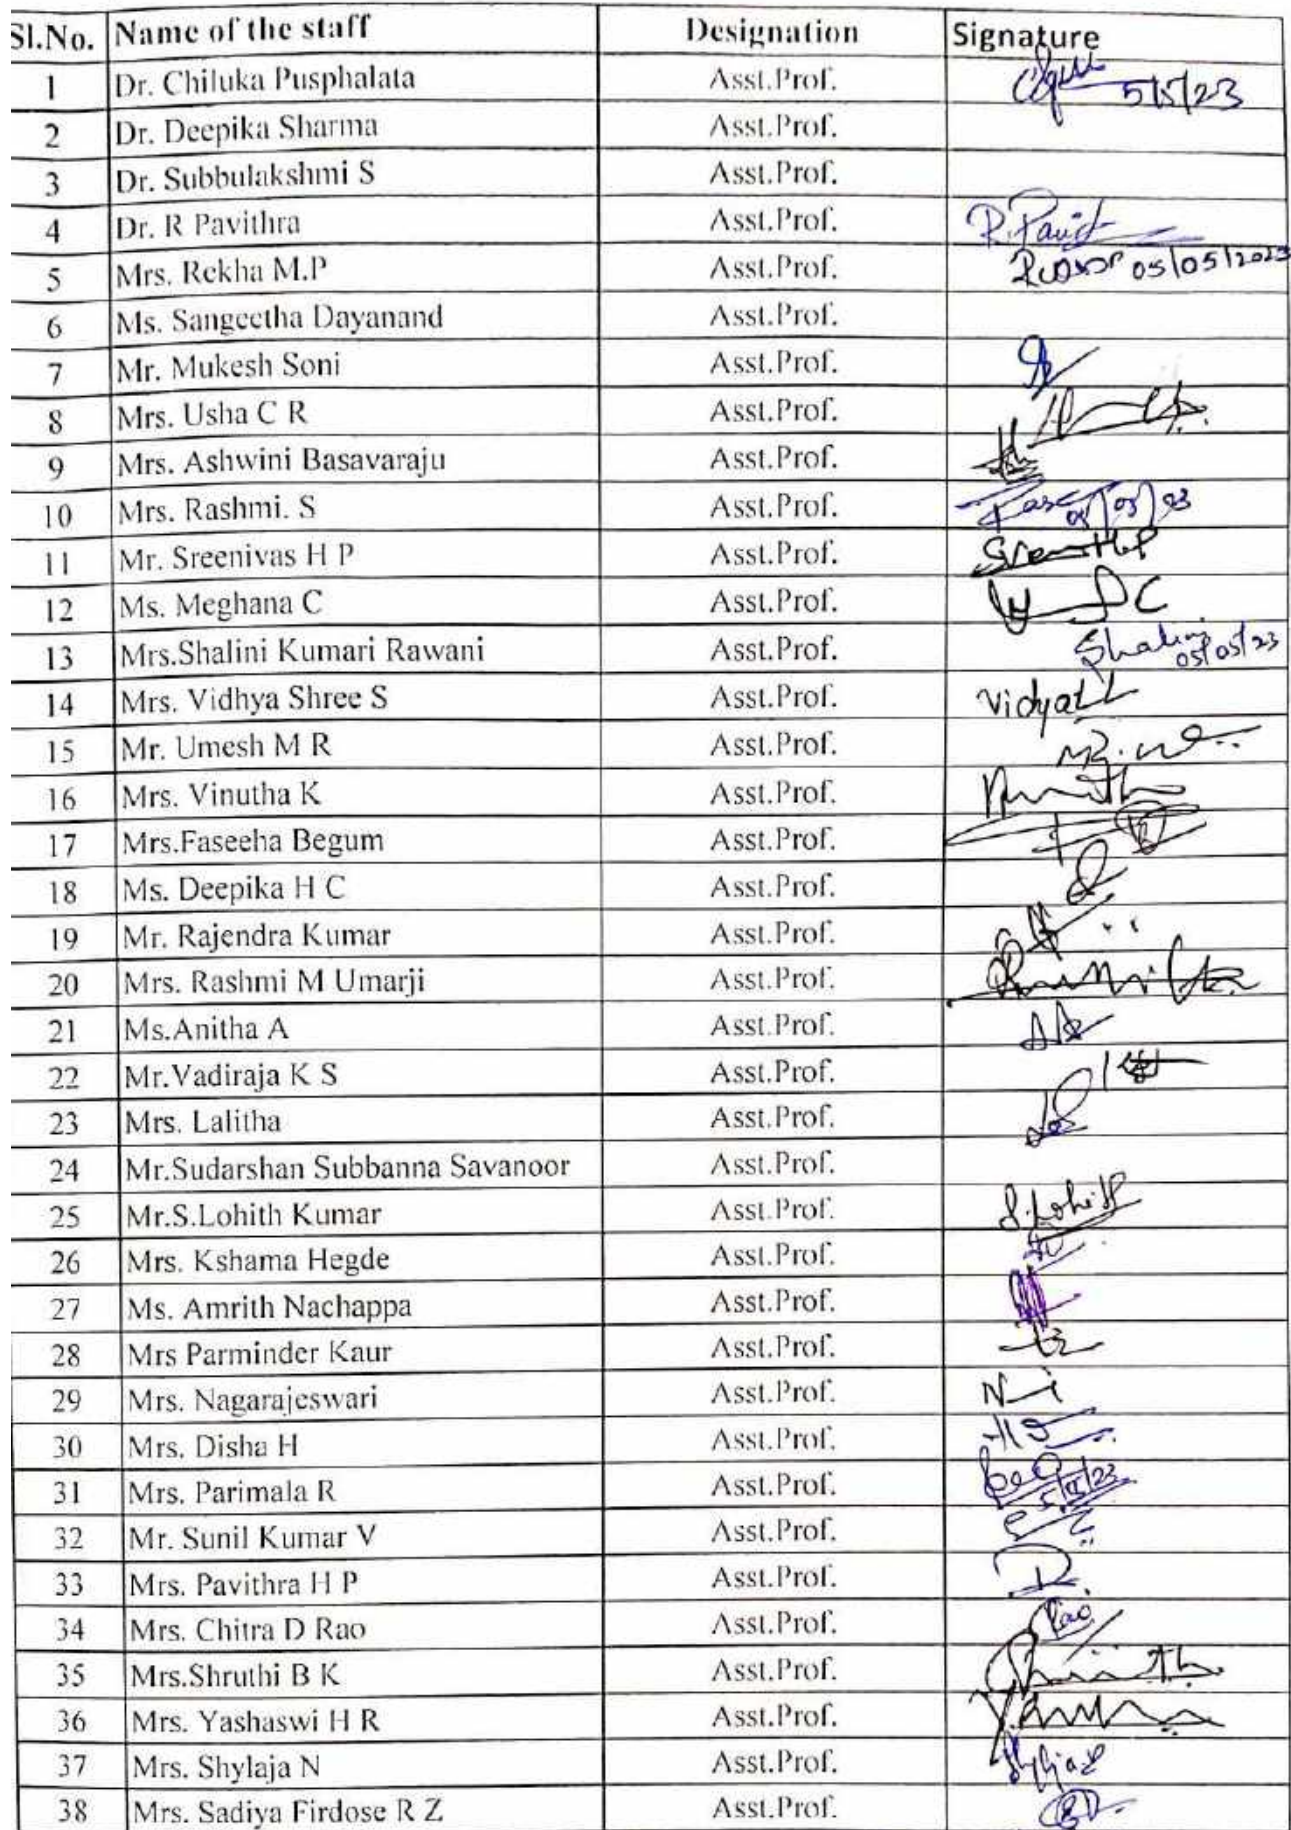 Sl.No. Name of the staff Designation Signature
1 Dr. Chiluka Pusphalata Asst.Prof. 5/5/23
2 Dr. Deepika Sharma Asst.Prof.
3 Dr. Subbulakshmi S Asst.Prof.
4 Dr. R Pavithra Asst.Prof.
5 Mrs. Rekha M.P Asst.Prof. 05/05/2023
6 Ms. Sangeetha Dayanand Asst.Prof.
7 Mr. Mukesh Soni Asst.Prof.
8 Mrs. Usha C R Asst.Prof.
9 Mrs. Ashwini Basavaraju Asst.Prof.
10 Mrs. Rashmi. S Asst.Prof.
11 Mr. Sreenivas H P Asst.Prof.
12 Ms. Meghana C Asst.Prof.
13 Mrs.Shalini Kumari Rawani Asst.Prof. 05/05/23
14 Mrs. Vidhya Shree S Asst.Prof.
15 Mr. Umesh M R Asst.Prof.
16 Mrs. Vinutha K Asst.Prof.
17 Mrs.Faseeha Begum Asst.Prof.
18 Ms. Deepika H C Asst.Prof.
19 Mr. Rajendra Kumar Asst.Prof.
20 Mrs. Rashmi M Umarji Asst.Prof.
21 Ms.Anitha A Asst.Prof.
22 Mr.Vadiraja K S Asst.Prof.
23 Mrs. Lalitha Asst.Prof.
24 Mr.Sudarshan Subbanna Savanoor Asst.Prof.
25 Mr.S.Lohith Kumar Asst.Prof. S.Lohith
26 Mrs. Kshama Hegde Asst.Prof.
27 Ms. Amrith Nachappa Asst.Prof.
28 Mrs Parminder Kaur Asst.Prof.
29 Mrs. Nagarajeswari Asst.Prof.
30 Mrs. Disha H Asst.Prof.
31 Mrs. Parimala R Asst.Prof. 5/5/23
32 Mr. Sunil Kumar V Asst.Prof.
33 Mrs. Pavithra H P Asst.Prof.
34 Mrs. Chitra D Rao Asst.Prof. Rao
35 Mrs.Shruthi B K Asst.Prof.
36 Mrs. Yashaswi H R Asst.Prof.
37 Mrs. Shylaja N Asst.Prof.
38 Mrs. Sadiya Firdose R Z Asst.Prof.